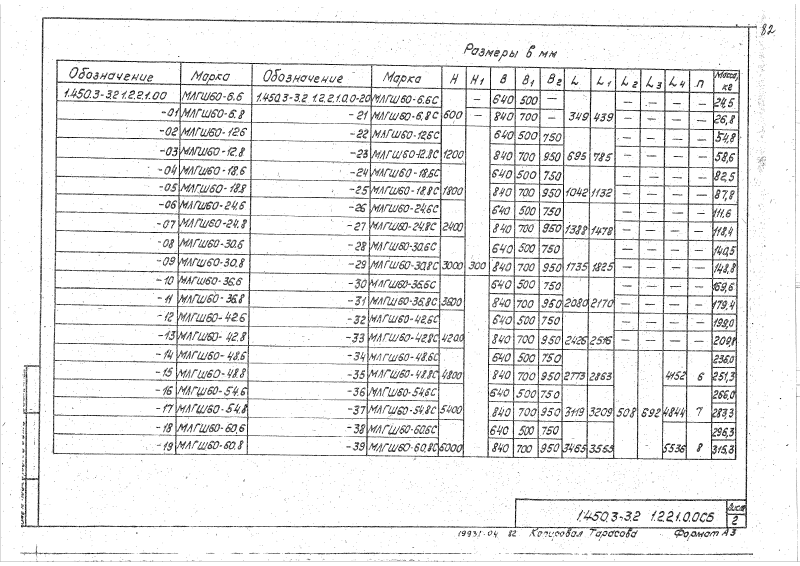 82
Размеры в мм
Обозначение Марка Обозначение Марка H H1 B B1 B2 L L1 L2 L3 L4 n Масса, кг
1.450.3-3.2 1.2.2.1.00 МЛГШ60-6.6 1.450.3-3.2 1.2.2.1.0.0-20 МЛГШ60-6.6С — 640 500 — — — — — 24,5
-01 МЛГШ60-6.8 -21 МЛГШ60-6.8С 600 — 840 700 — 349 439 — — — — 26,8
-02 МЛГШ60-12.6 -22 МЛГШ60-12.6С 640 500 750 — — — — 54,8
-03 МЛГШ60-12.8 -23 МЛГШ60-12.8С 1200 840 700 950 695 785 — — — — 58,6
-04 МЛГШ60-18.6 -24 МЛГШ60-18.6С 640 500 750 — — — — 82,5
-05 МЛГШ60-18.8 -25 МЛГШ60-18.8С 1800 840 700 950 1042 1132 — — — — 87,8
-06 МЛГШ60-24.6 -26 МЛГШ60-24.6С 640 500 750 — — — — 111,6
-07 МЛГШ60-24.8 -27 МЛГШ60-24.8С 2400 840 700 950 1388 1478 — — — — 118,4
-08 МЛГШ60-30.6 -28 МЛГШ60-30.6С 640 500 750 — — — — 140,5
-09 МЛГШ60-30.8 -29 МЛГШ60-30.8С 3000 300 840 700 950 1735 1825 — — — — 148,8
-10 МЛГШ60-36.6 -30 МЛГШ60-36.6С 640 500 750 — — — — 169,6
-11 МЛГШ60-36.8 -31 МЛГШ60-36.8С 3600 840 700 950 2080 2170 — — — — 179,4
-12 МЛГШ60-42.6 -32 МЛГШ60-42.6С 640 500 750 — — — — 198,0
-13 МЛГШ60-42.8 -33 МЛГШ60-42.8С 4200 840 700 950 2426 2516 — — — — 209,8
-14 МЛГШ60-48.6 -34 МЛГШ60-48.6С 640 500 750 236,0
-15 МЛГШ60-48.8 -35 МЛГШ60-48.8С 4800 840 700 950 2773 2863 4152 6 251,3
-16 МЛГШ60-54.6 -36 МЛГШ60-54.6С 640 500 750 266,0
-17 МЛГШ60-54.8 -37 МЛГШ60-54.8С 5400 840 700 950 3119 3209 508 692 4844 7 283,3
-18 МЛГШ60-60.6 -38 МЛГШ60-60.6С 640 500 750 296,3
-19 МЛГШ60-60.8 -39 МЛГШ60-60.8С 6000 840 700 950 3465 3553 5536 8 315,3
1.450.3-3.2 1.2.2.1.0.0СБ
Лист
2
19931-04 82 Копировал Тарасова Формат А3